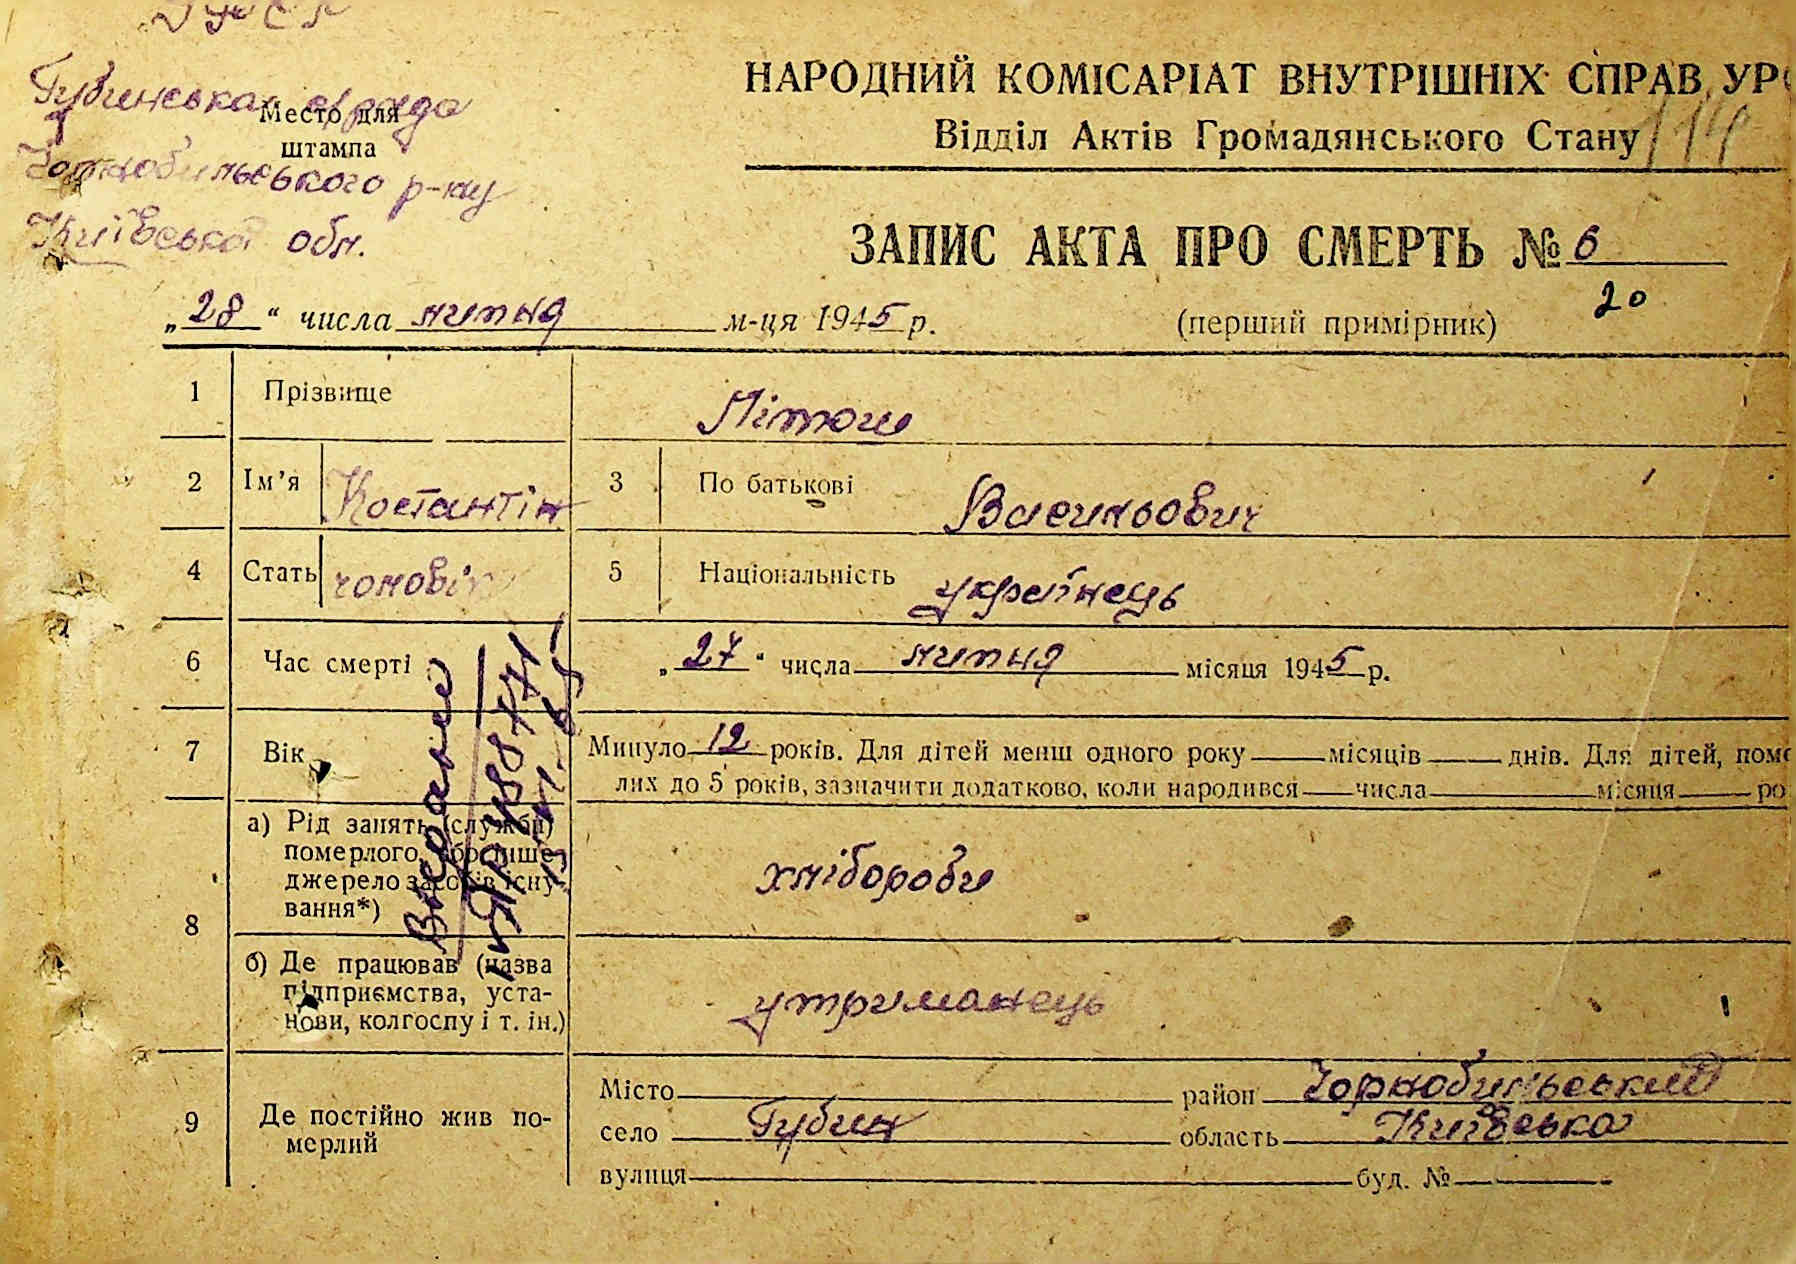 УРСР
Губинська с/рада
Место для
штампа
Чорнобильського р-ну
Київської обл.
НАРОДНИЙ КОМІСАРІАТ ВНУТРІШНІХ СПРАВ УР
Відділ Актів Громадянського Стану
114
ЗАПИС АКТА ПРО СМЕРТЬ № 6
20
„28“ числа липня м-ця 1945 р. (перший примірник)
1 Прізвище
2 Ім’я Костантін 3 По батькові Васильович
4 Стать чоловік 5 Національність українець
6 Час смерті „27“ числа липня місяця 1945 р.
7 Вік Минуло 12 років. Для дітей менш одного року місяців днів. Для дітей, поме
лих до 5 років, зазначити додатково, коли народився числа місяця ро
8 а) Рід занять (служби)
померлого, або інше
джерело засобів існу-
вання*)
хлібороби
б) Де працював (назва
підприємства, уста-
нови, колгоспу і т. ін.)
утриманець
9 Де постійно жив по-
мерлий
Місто район Чорнобильський
село Губин область Київська
вулиця буд. №